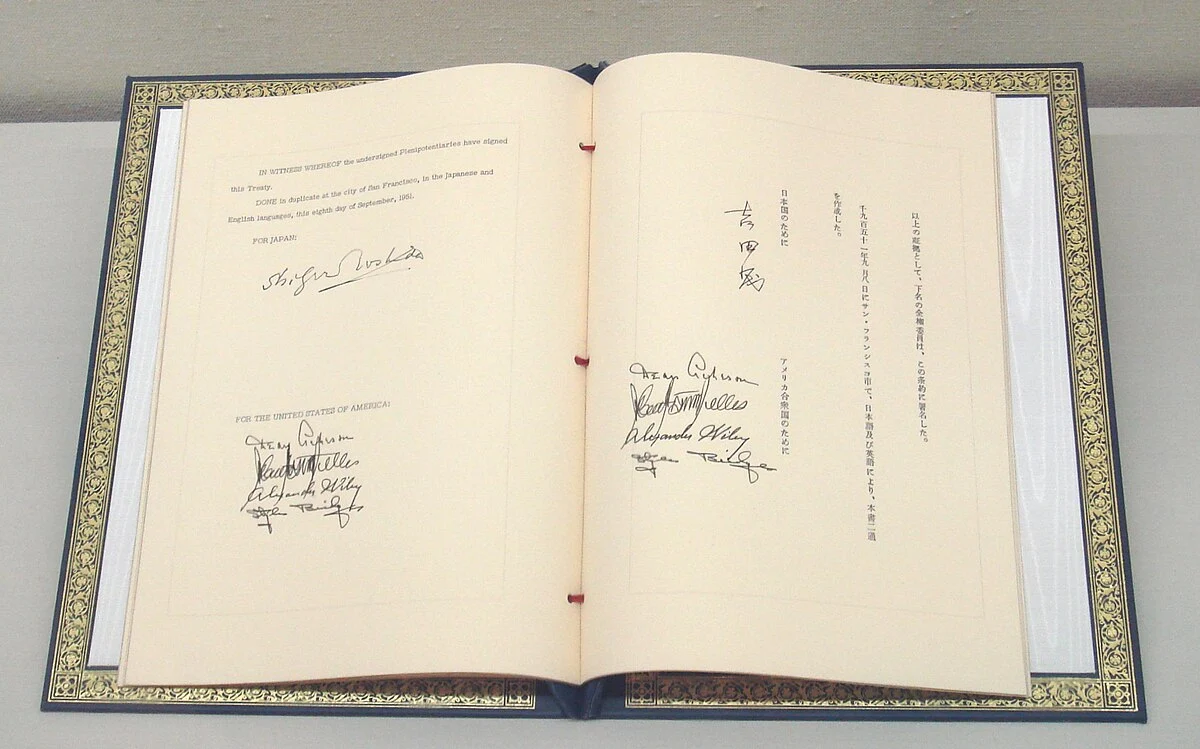 IN WITNESS WHEREOF the undersigned Plenipotentiaries have signed
this Treaty.
DONE in duplicate at the city of San Francisco, in the Japanese and
English languages, this eighth day of September, 1951.
FOR JAPAN:
Shigeru Yoshida
FOR THE UNITED STATES OF AMERICA:
Dean Acheson
John Foster Dulles
Alexander Wiley
Styles Bridges
以上の証拠として、下名の全権委員は、この条約に署名した。
千九百五十一年九月八日にサン・フランシスコ市で、日本語及び英語により、本書二通
を作成した。
日本国のために
吉田茂
アメリカ合衆国のために
Dean Acheson
John Foster Dulles
Alexander Wiley
Styles Bridges